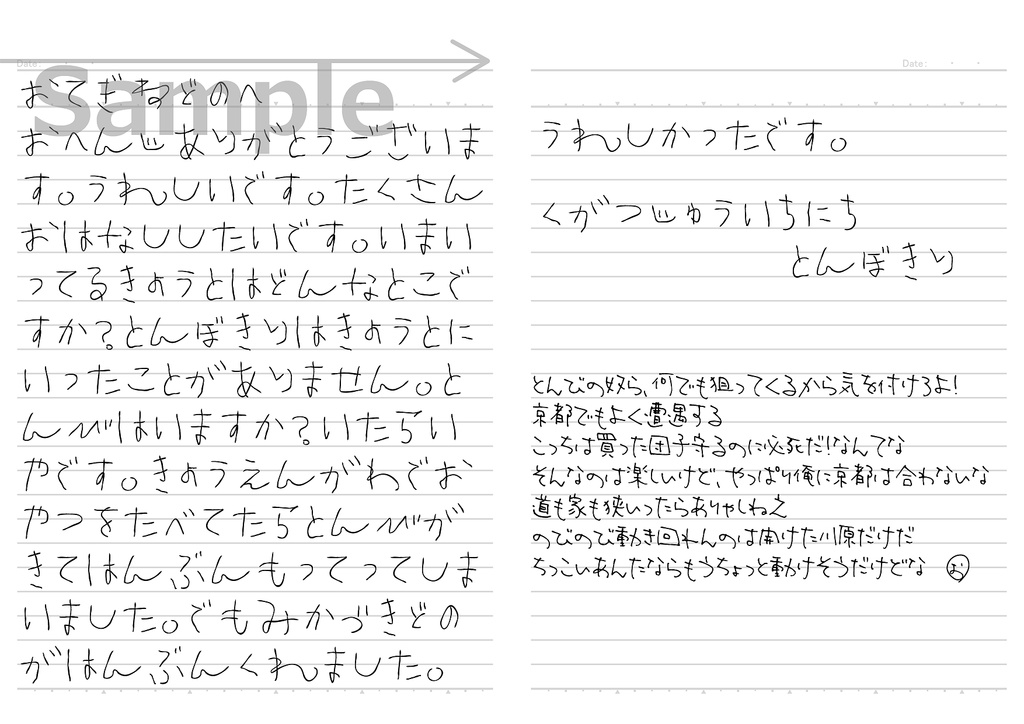 Date:
Sample
おてぎねどのへ
おへんじありがとうございま
す。うれしいです。たくさん
おはなししたいです。いまい
ってるきょうとはどんなとこで
すか？とんぼきりはきょうとに
いったことがありません。と
んびはいますか？いたらい
やです。きょうえんがわでお
やつをたべてたらとんびが
きてはんぶんもってってしま
いました。でもみかづきどの
がはんぶんくれました。
Date:
うれしかったです。
くがつじゅういちにち
とんぼきり
とんびの奴ら、何でも狙ってくるから気を付けろよ！
京都でもよく遭遇する
こっちは買った団子守るのに必死だ！なんてな
そんなのは楽しいけど、やっぱり俺に京都は合わないな
道も家も狭いったらありゃしねえ
のびのび動き回れんのは開けた川原だけだ
ちっこいあんたならもうちょっと動けそうだけどな お